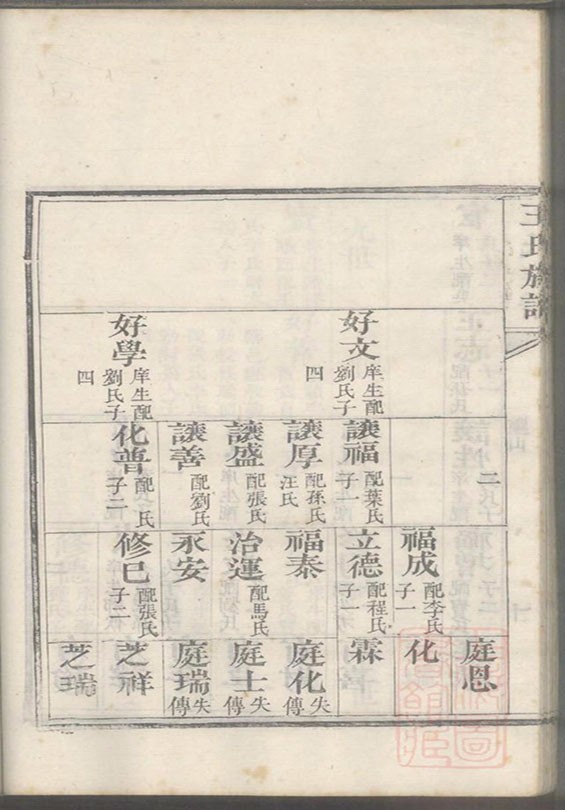 王氏族譜
好文 庠生配劉氏子四
好學 庠生配劉氏子四
二
讓福 配葉氏子一
讓厚 配孫氏汪氏
讓盛 配張氏
讓善 配劉氏
化普 配 氏子二
福成 配李氏子一
立德 配程氏子一
福泰
治運 配馬氏
永安
修巳 配張氏子二
庭恩
化
霖
庭化 失傳
庭士 失傳
庭瑞 失傳
芝祥
芝瑞